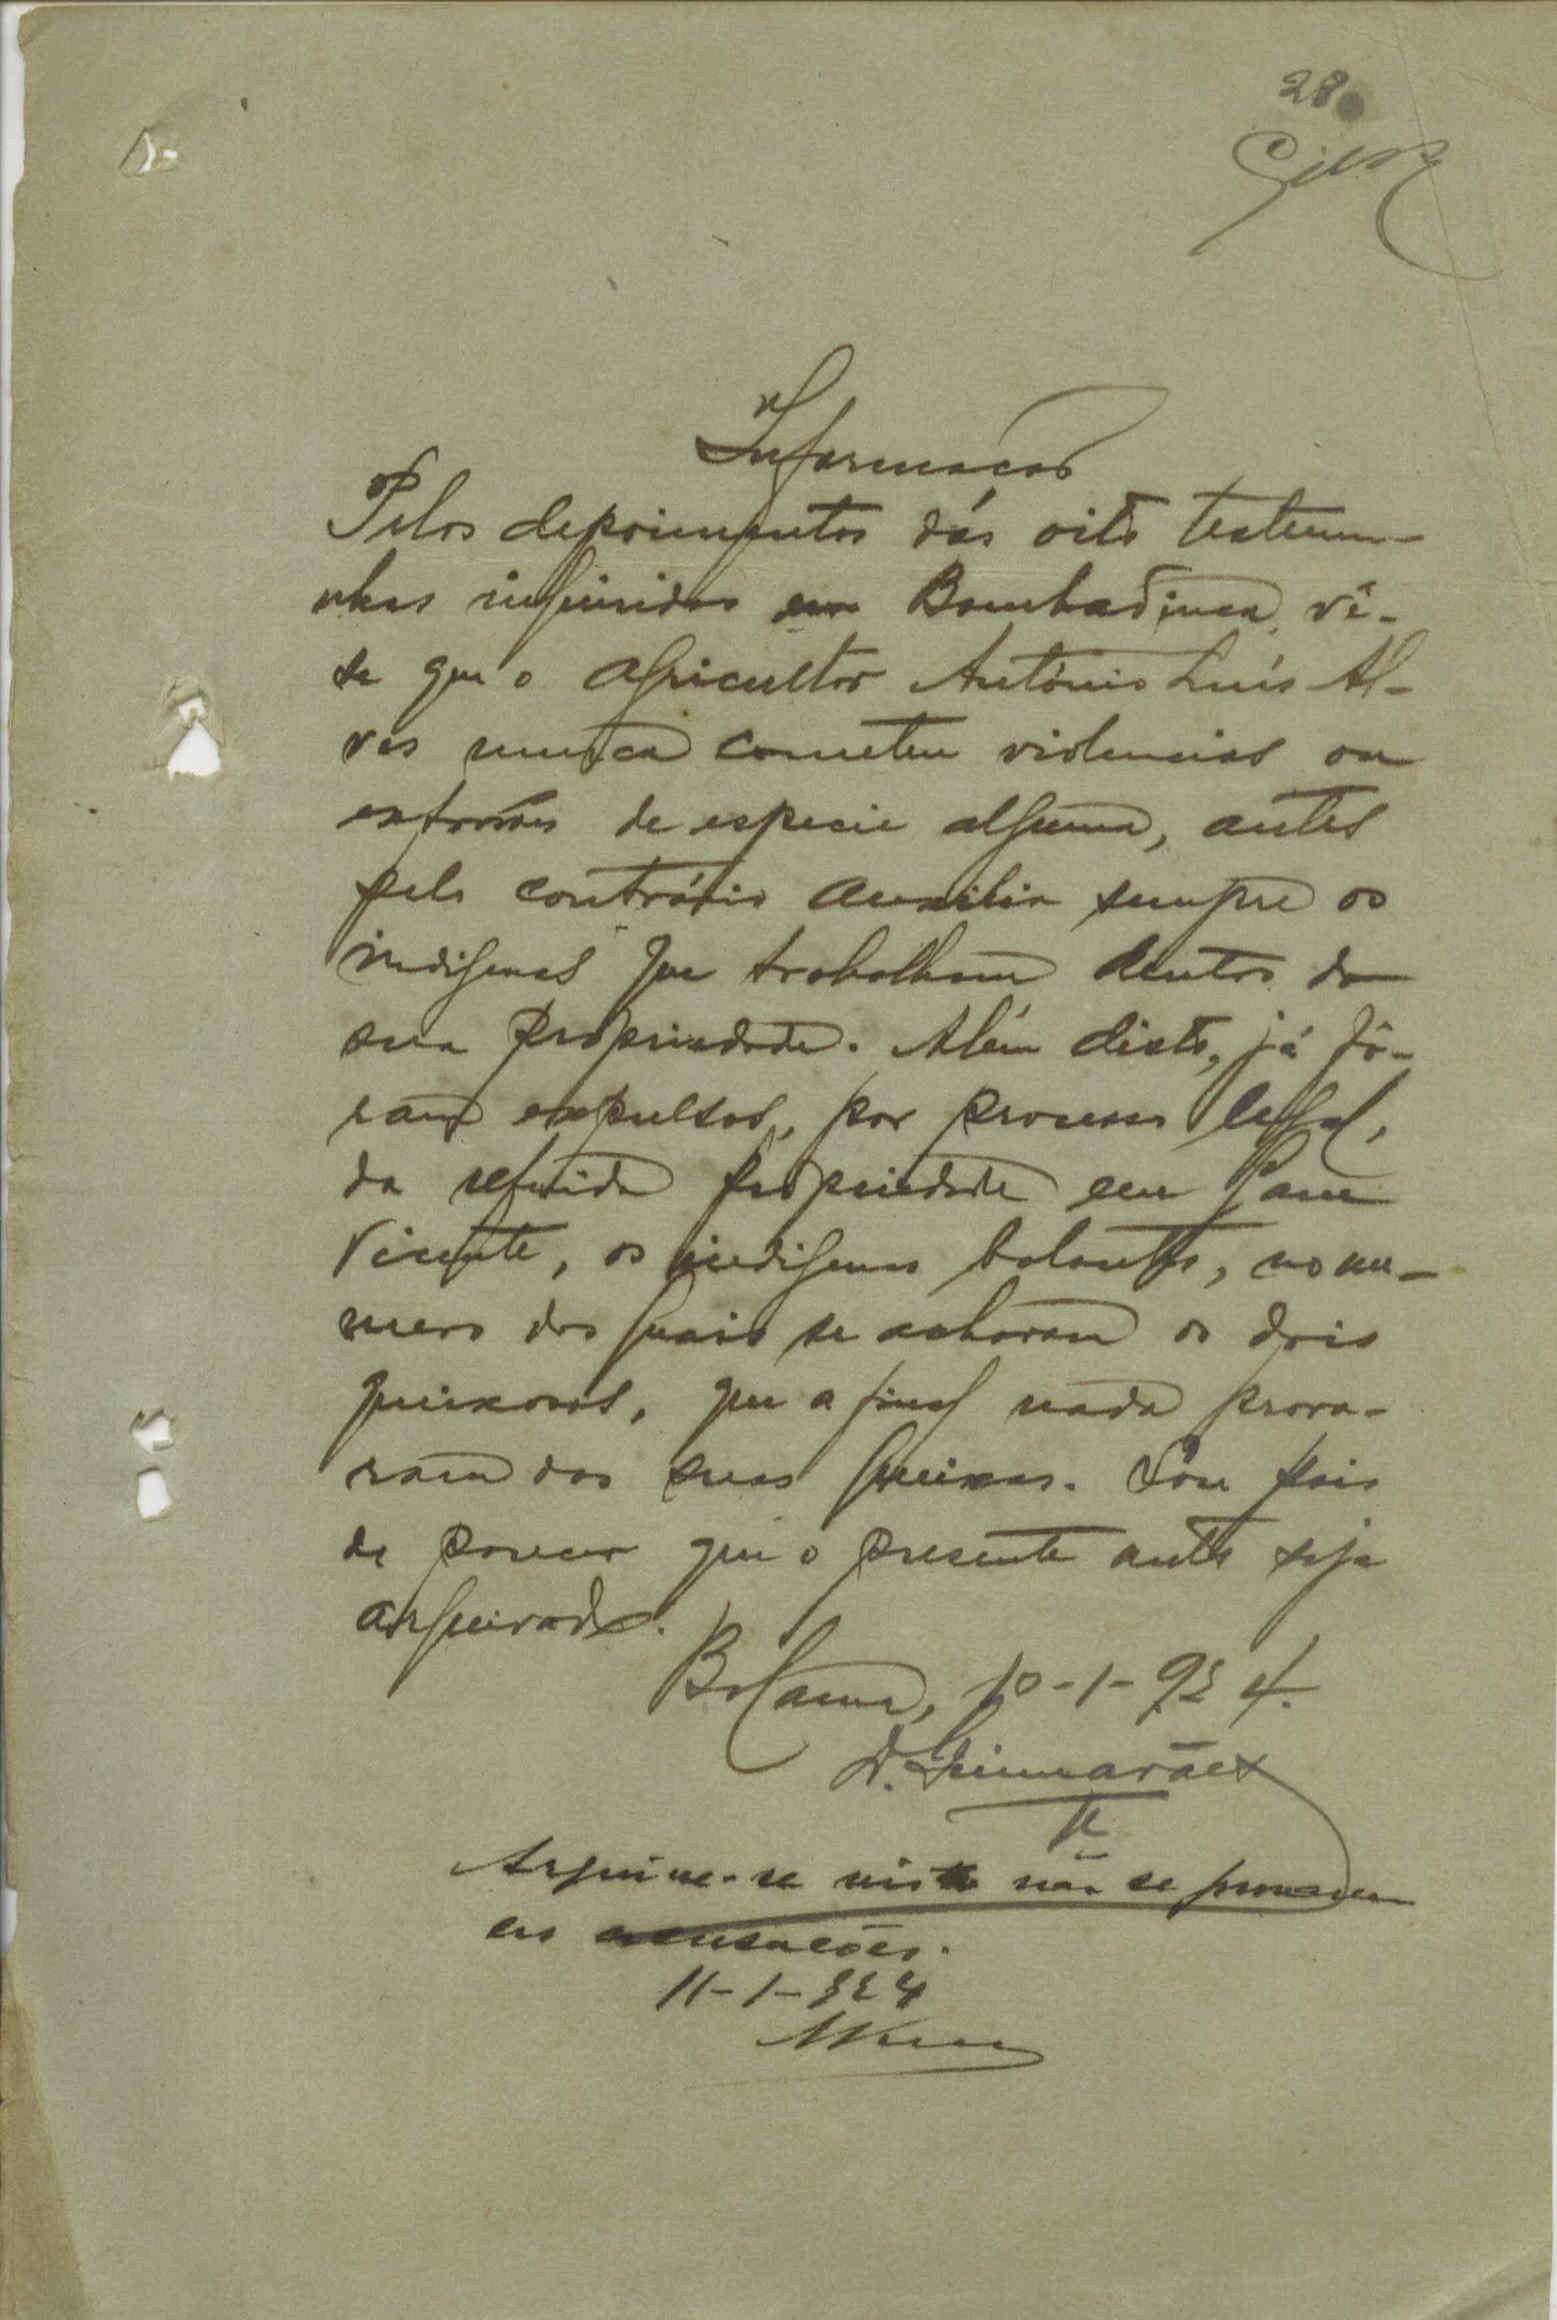 28
Informação
Pelos depoimentos das oito testemu-
nhas inquiridas em Bambadinca, vê-
se que o agricultor António Luís Al-
ves nunca cometeu violencias ou
extorsões de especie alguma, antes
pelo contrário auxilia sempre os
indigenas que trabalham dentro da
sua propriedade. Além disto, já fô-
ram expulsos, por processo legal,
da referida propriedade em
Vicente, os indigenas balantas, no nu-
mero dos quais se acharam os dois
queixosos, que a final nada prova-
ram das suas queixas. Sou pois
de parecer que o presente auto seja
arquivado.
Bolama, 10-1-924.
D. Guimarães
Te
Arquive-se visto não se provarem
as acusações.
11-1-924